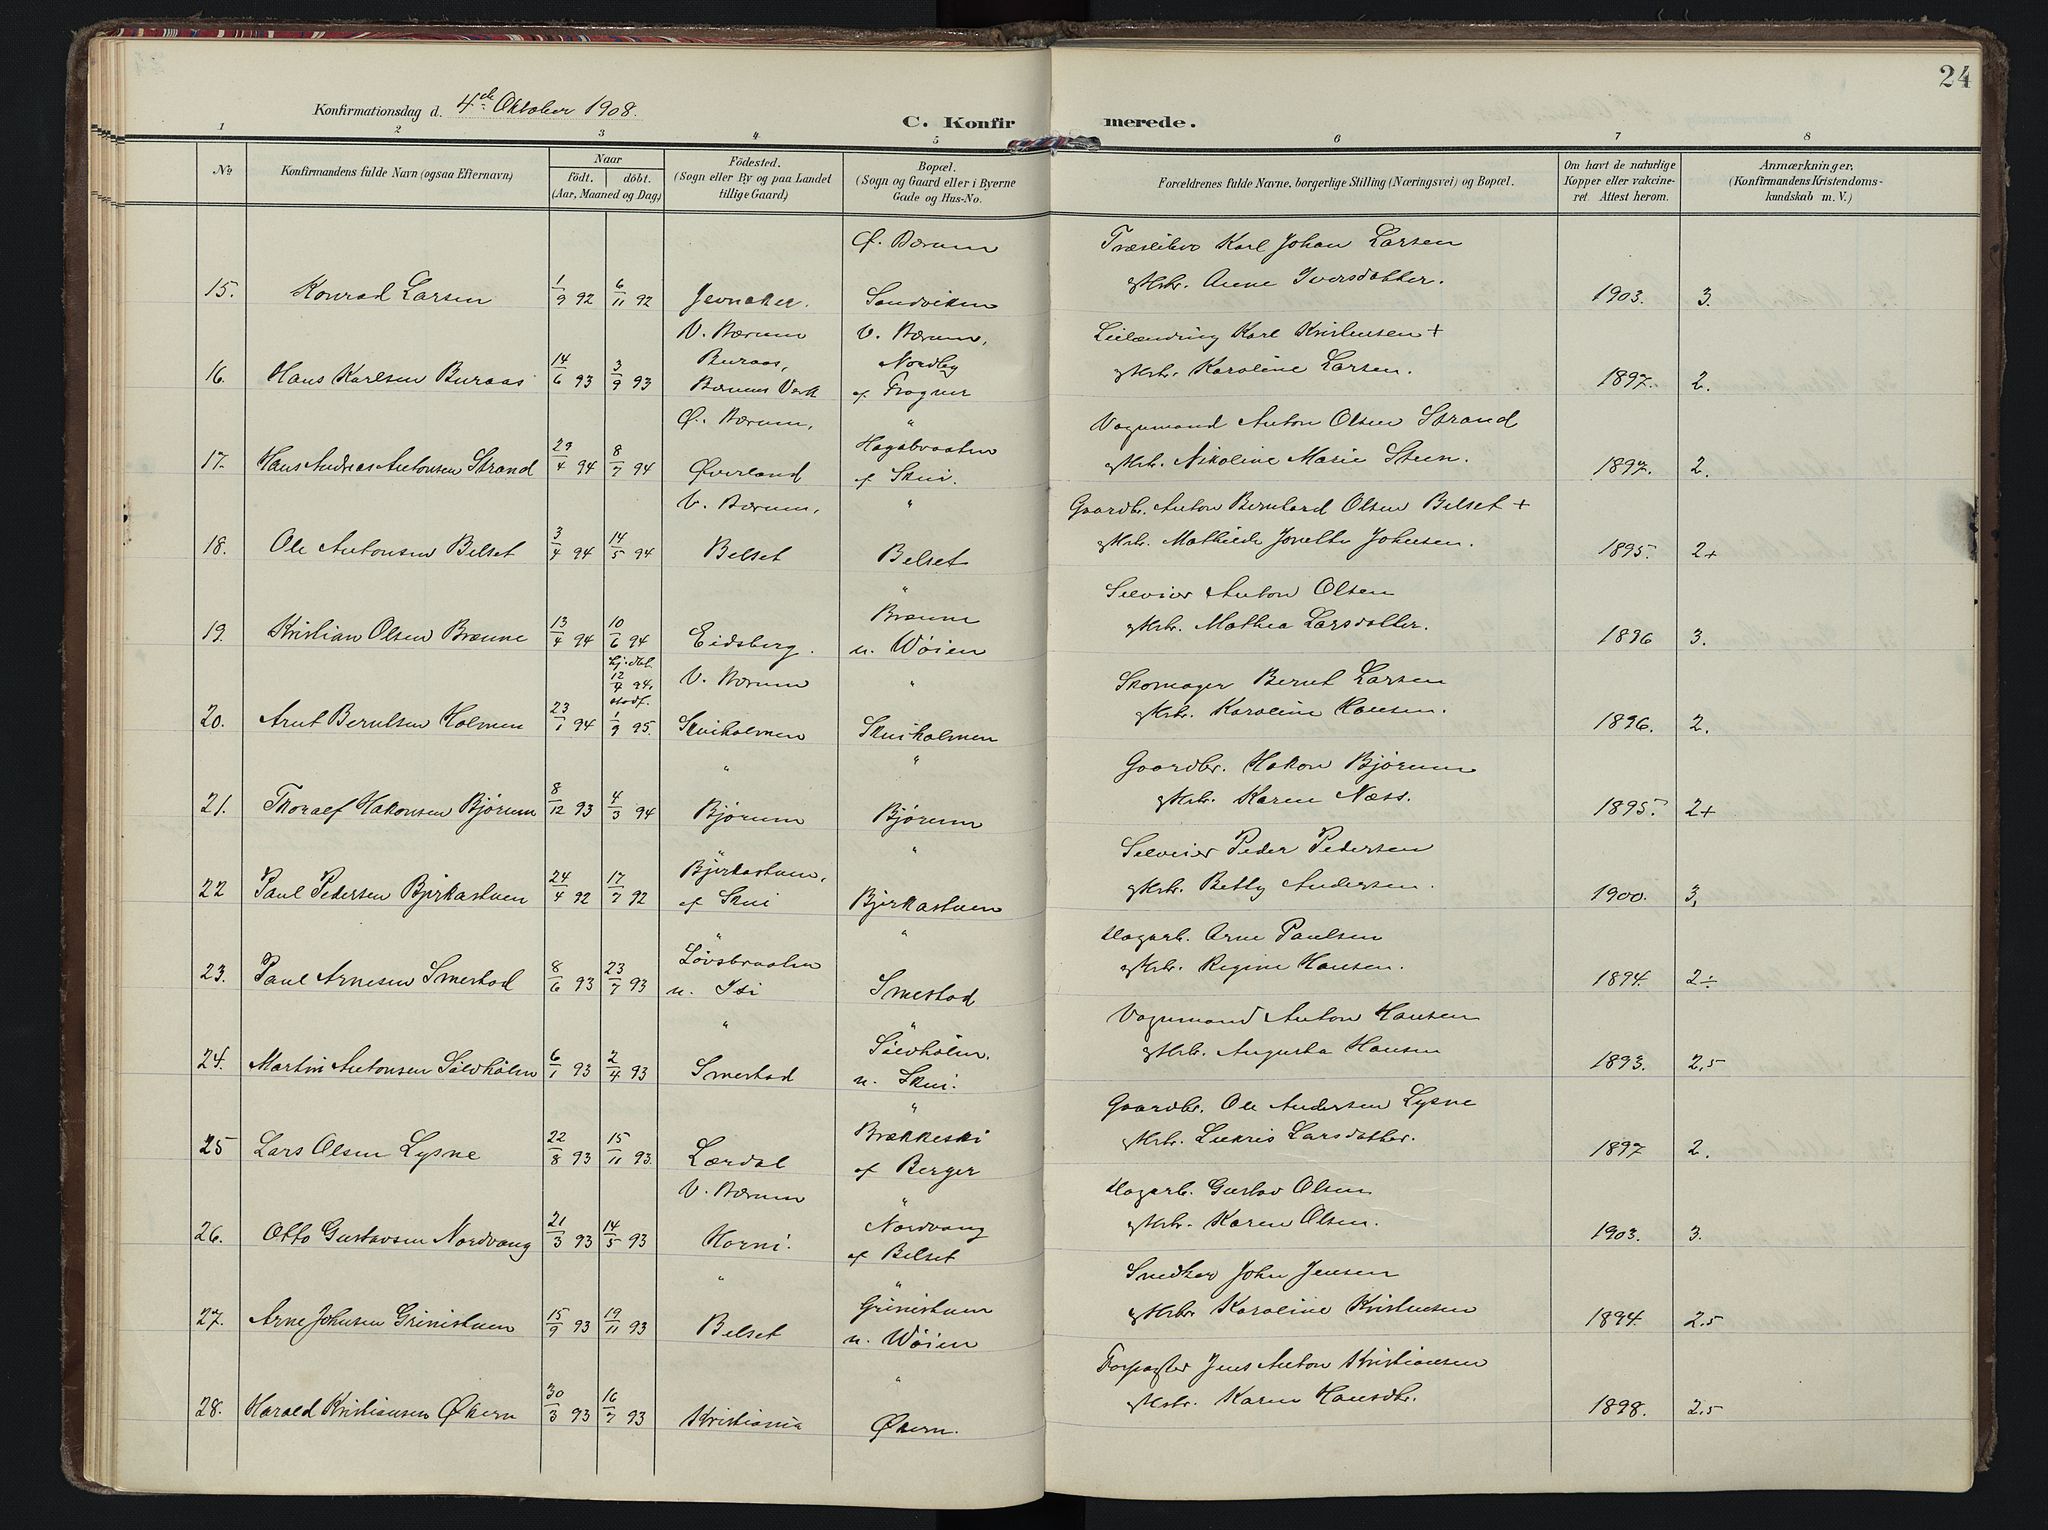 24
Konfirmationsdag d. 4de Oktober 1908.
C. Konfirmerede.
1 2 3 4 5 6 7 8
No
Konfirmandens fulde Navn (ogsaa Efternavn)
Naar
födt. döbt.
(Aar, Maaned og Dag)
Födested.
(Sogn eller By og paa Landet
tillige Gaard)
Bopæl.
(Sogn og Gaard eller i Byerne
Gade og Hus-No.
Forældrenes fulde Navne, borgerlige Stilling (Næringsvei) og Bopæl.
Om havt de naturlige
Kopper eller vakcine-
ret. Attest herom.
Anmærkninger,
(Konfirmandens Kristendoms-
kundskab m. V.)
Ø. Bærum Træsliber Karl Johan Larsen
15. Konrad Larsen 1/9 92 6/11 92 Jevnaker. Sandviken gHr. Anne Iversdatter. 1903. 3.
V. Bærum V. Bærum, Leilænding Karl Kristensen +
16. Hans Karlsen Buraas 14/6 93 3/9 93 Buraas, Bærums Verk Nordby af Frogner Karoline Larsen. 1897. 2.
Ø. Bærum, " Vognmand Anton Olsen Strand
17. Hans Andreas Antonsen Strand 29/4 94 8/7 94 Øverland Hagabraaten af Skui. Nikoline Marie Steen. 1897. 2.
V. Bærum, " Gaardbr. Anton Bernhard Olsen Belset +
18. Ole Antonsen Belset 3/4 94 14/5 94 Belset Belset Mathilde Jonette Johnsen. 1895. 2+
" Anton Olsen
19. Kristian Olsen Brænne 13/4 94 10/6 94 Eidsberg. Brænne u. Wøien Mathea Larsdatter. 1896 3.
Hj. dbt. 12/4 94. stadf.
V. Bærum " Skomager Bernt Larsen
20. Arnt Berntsen Holmen 23/1 94 1/9 95. Skuiholmen Skuiholmen Karoline Hansen. 1896. 2.
" " Gaardbr. Hakon Bjørum
21. Thoralf Hakonsen Bjørum 8/12 93 4/3 94 Bjørum Bjørum Karen Næss. 1895. 2+
" " Peder Pedersen
22 Paul Pedersen Bjerkastuen 24/4 92 17/7 92 Bjerkastuen, af Skui Bjerkastuen Betty Andersen. 1900. 3,
" " Dagarb. Arne Paulsen
23. Paul Arnesen Smestad 8/6 93 23/7 93 Løvsbraaten u. Isi Smestad Regine Hansen. 1894. 2÷
" " Vognmand Anton Hansen
24. Martin Antonsen Sølvhølen 6/1 93 2/4 93 Smestad Sølvhølen. u. Skui. Augusta Hansen 1893. 2,5
" Gaardbr. Ole Andersen Lysne
25 Lars Olsen Lysne 22/8 93 15/11 93. Lærdal Brækkeski af Berger Larsdatter. 1897 2.
V. Bærum " Dagarb. Gustav Olsen
26. Otto Gustavsen Nordvang 21/3 93 14/5 93 Horni. Nordvang af Belset Karen Olsen. 1903. 3.
" " Snedker John Jensen
27. Arne Johnsen Grinistuen 15/9 93 19/11 93 Belset Grinistuen u. Wøien Karoline Kristensen 1894. 2,5
" Forpagter Jens Anton Kristiansen
28. Harald Kristiansen Økern 30/3 93 16/7 93 Kristiania Økern. Karen Hansdtr. 1898. 2,5